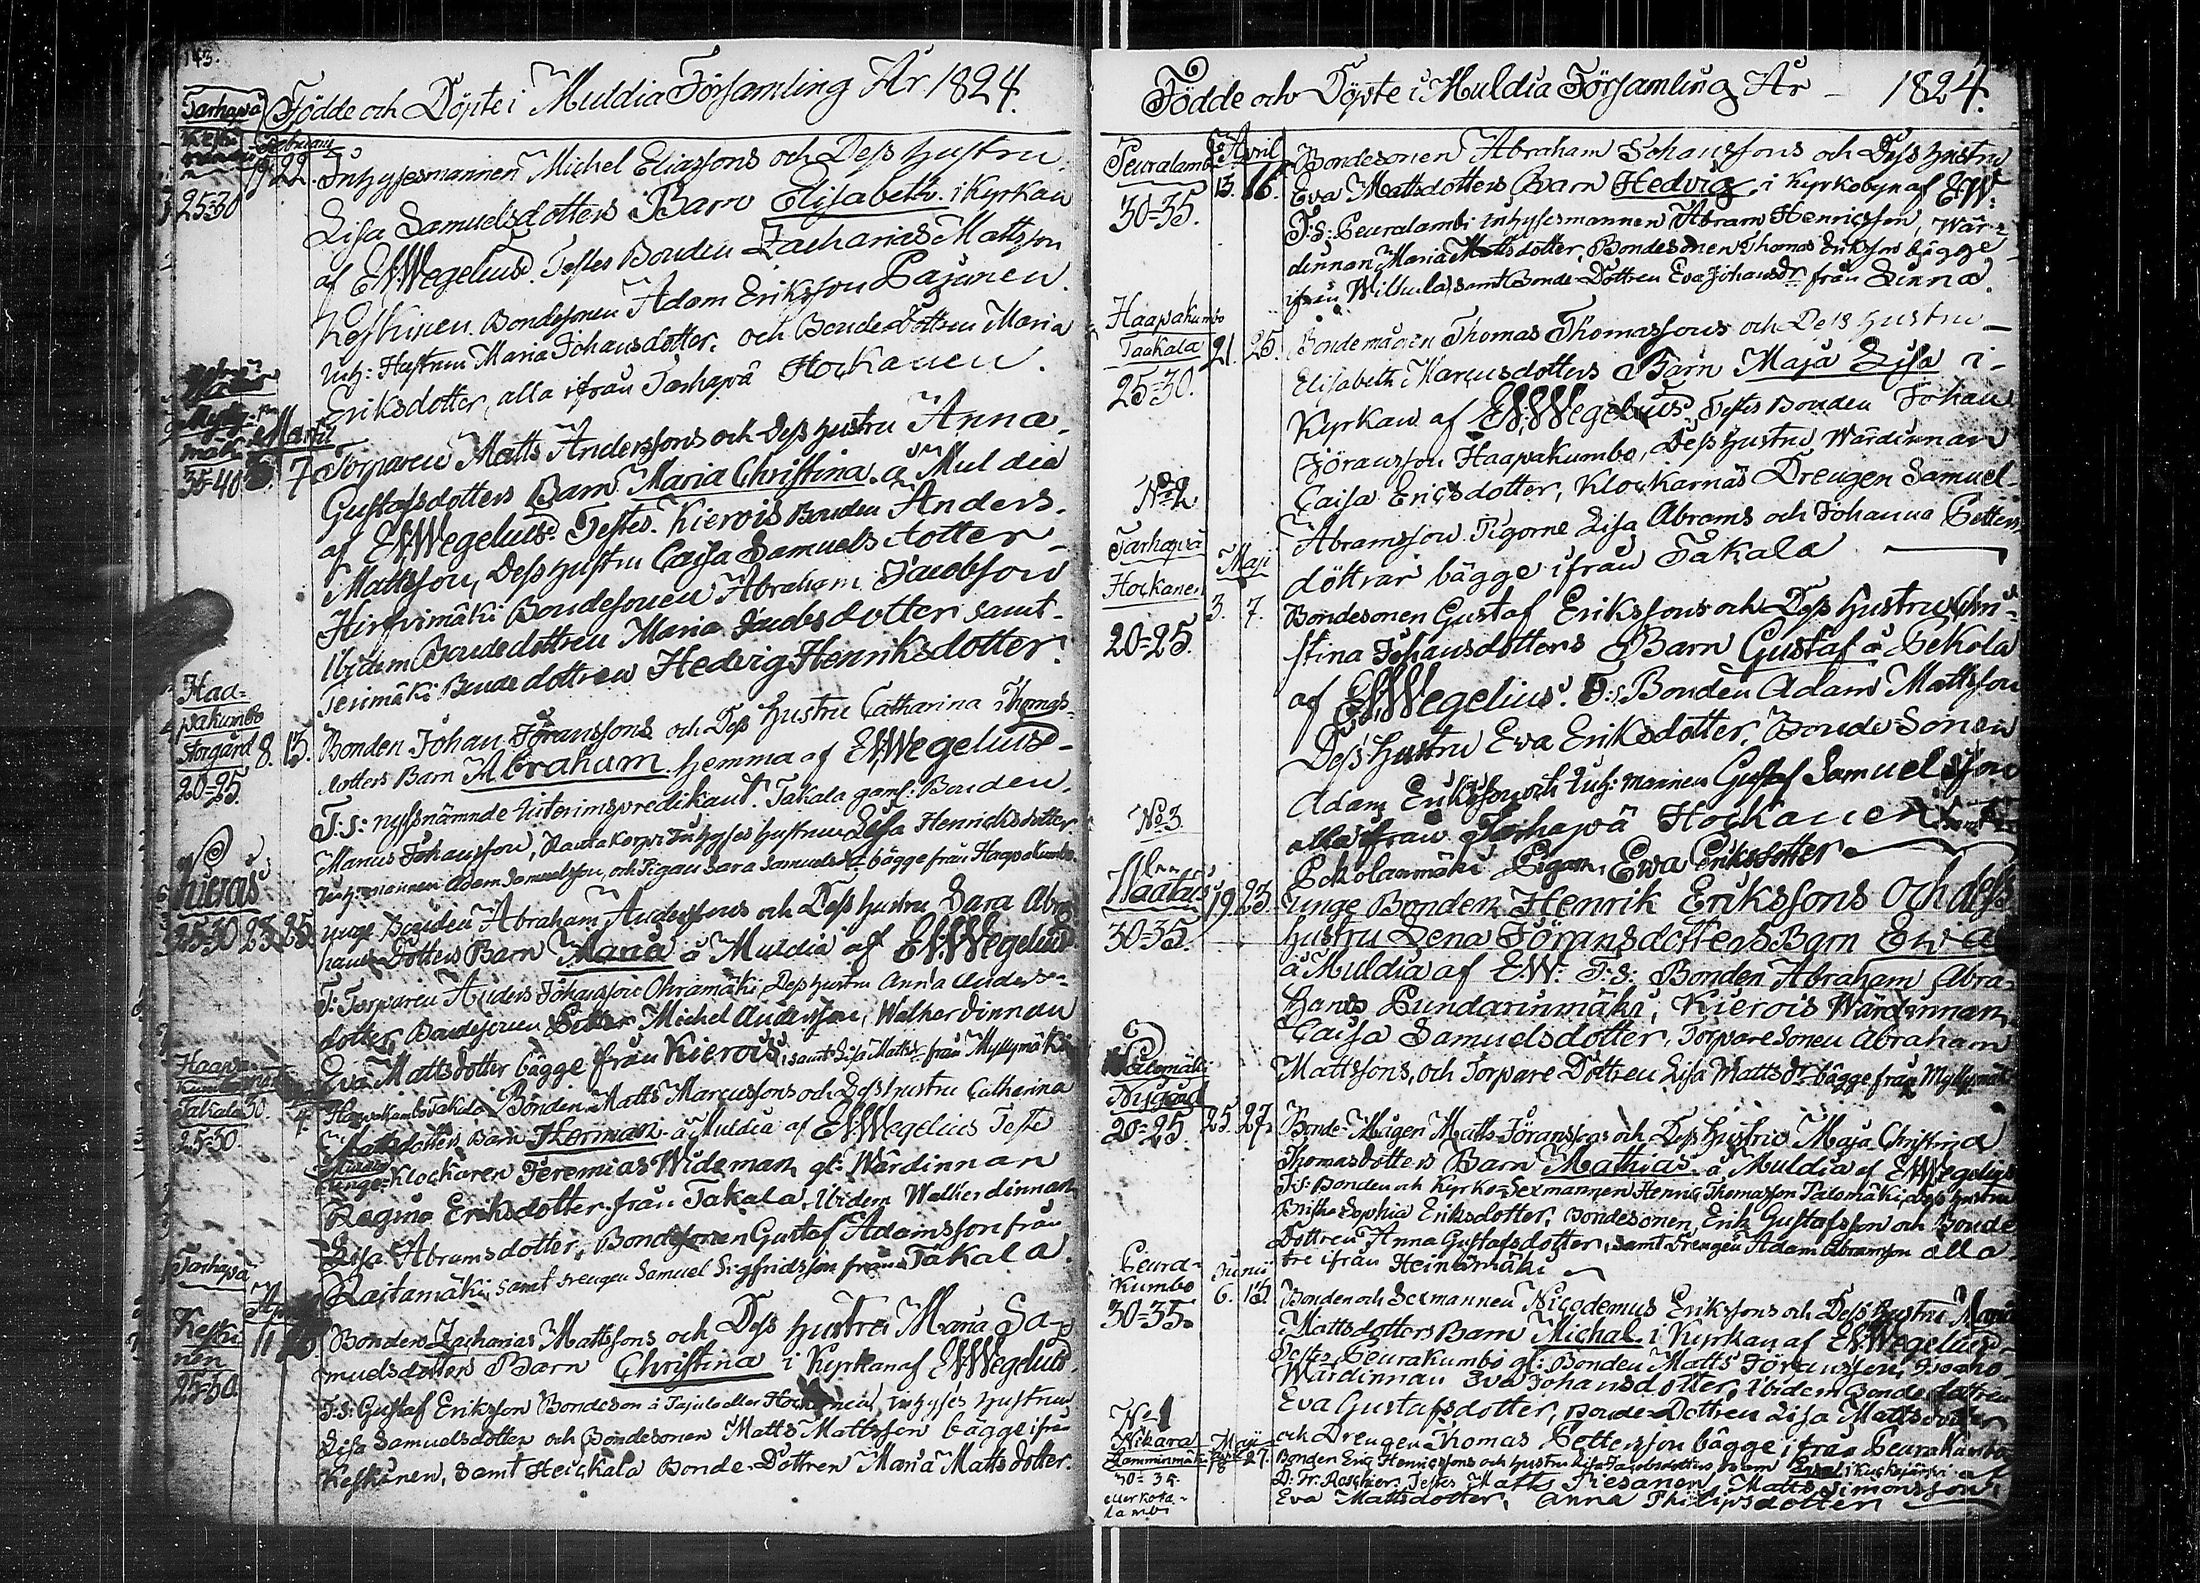 143.
Födde och Döpte i Muldia Församling År 1824.
Tarhapä
Keski
February
22.
25-30
Inhysesmannen Michel Eliassons och Dess hustru
Lisa Samuelsdotters Barn Elisabeth i Kyrkan
af EWWegelius. Testes Bonden Zacharias Mattsson
Keskinen. Bondesonen Adam Eriksson Pajunen.
Inh: Hustrun Maria Johansdotter: och Bonde-Dottren Maria
Eriksdotter, alla ifrån Tarhapä Hockanen.
Martii
7
35-40
Torparen Matts Anderssons och Dess hustru Anna
Gustafsdotters Barn Maria Christina å Muldia
af EWWegelius. Testes. Kierois Bonden Anders
Mattsson, Dess hustru Caisa Samuelsdotter
Hirfvimäki Bondesonen Abraham Jacobsson
Ibidem Bondedottren Maria Jacobsdotter samt
Bonde dottren Hedvig Henriksdotter.
Haapakumbo
Storgård 8. 13.
20-25.
Bonden Johan Göranssons och Dess hustru Catharina Thomas-
dotters Barn Abraham. hemma af EWWegelius
T:s: nyssnämnde Interimspredikant. Takala gaml: Bonden
Marcus Johansson, Rautakorpi Inhyses hustrun Lisa Henrichsdotter
Inh: mannen Adam Samuelsson, och Pigan Sara Samuels Dr bägge från Haapakumbo
Kieräs
25-30 23. 25.
unge Bonden Abraham Anderssons och Dess hustru Sara Abra
hams Dotters Barn Maria å Muldia af EWWegelius
T: Torparen Anders Johansson Ohramäki, Dess hustru Anna Anders-
dotter, Bondesonen Michel Andersson, Walkerdinnan
Eva Mattsdotter bägge från Kierois, samt Lisa Matts Dr från Myllymäki
Haapakumbo
Takala 30. 4
25-30.
Haapakumbo Takala Bonden Matts Marcussons och Dess hustru Catharina
Mattsdotters Barn Herman å Muldia af EWWegelius Teste
Klockaren Jeremias Wideman, gl: Wärdinnan
Regina Eriksdotter från Takala, Ibidem Walkerdinnan
Lisa Abramsdotter, Bondesonen Gustaf Adamsson från
Raitamäki, samt drengen Samuel Sigfridsson från Takala.
Tarhapä
Keskinen
11
25-30.
Bonden Zacharias Mattssons och Dess hustru Maria Sa-
muelsdotters Barn Christina i Kyrkan af EWWegelius.
T:s: Gustaf Eriksson Bondeson å Tajula eller Hockanen, inhyses hustrun
Lisa Samuelsdotter och Bondesonen Matts Mattsson bägge ifrån
Keskinen, samt Heickala Bonde-Dottren Maria Mattsdotter.
Födde och Döpte i Muldia Församling År - 1824.
Peuralambi
April
13. 16.
30-35.
Bondesonen Abraham Johanssons och Dess hustru
Eva Mattsdotters Barn Hedvig, i Kyrkobyn af EW:
T:s: Peuralambi inhysesmannen Abram Henricsson, Wär-
dinnan Maria Mattsdotter, Bondesonen Thomas Eriksson bägge
ifrån Wilhula, samt Bonde-Dottren Eva Johans Dr från Linna.
Haapakumbo
Taakala 21. 25.
25-30.
Bondemågen Thomas Thomassons och Dess hustru
Elisabeth Marcusdotters Barn Maja Lisa i
Kyrkan af EWWegelius. Testes Bonden Johan
Göransson Haapakumbo, Dess hustru Wärdinnan
Caisa Ericsdotter, Klockarnäs Drengen Samuel
Abramsson. Pigorne Lisa Abrams och Johanna Petters
döttrar bägge ifrån Takala
No 2
Tarhapä
Hockanen
Maji
3. 7.
20-25.
Bondesonen Gustaf Erikssons och Dess hustru Chri-
stina Johansdotters Barn Gustaf å Pekola
af EWWegelius. T:s: Bonden Adam Mattsson
Dess hustru Eva Eriksdotter, Bonde-Sonen
Adam Eriksson och Inh: mannen Gustaf Samuelsson
alla ifrån Tarhapä Hockanen samt
Pekolanmäki Pigan, Ewa Eriksdotter
No 3
19. 23.
30-35.
unge Bonden Henrik Erikssons och dess
hustru Lena Göransdotters Barn Ewa
å Muldia af EW: T:s: Bonden Abraham Abra-
hams Pundarinmäki, Kierois Wärdinnan
Caisa Samuelsdotter, Torparesonen Abraham
Mattssons, och Torpare Döttren Lisa Matts Dr bägge från Myllymäki
Palomäki
Nygård
20-25. 25. 27.
Bonde-Mågen Matts Göranssons och Dess hustru Maja Christina
Thomasdotters Barn Mathias å Muldia af EWWegelius
T:s: Bonden och Kyrko-Sexmannen Henric Thomasson Palomäki, Dess hustru
Briska Sophia Eriksdotter, Bondesonen, Erik Gustafsson och Bonde
Dottren Anna Gustafsdotter, samt Drengen Adam Abramsson alla
tre ifrån Heinämäki
Peurakumbo
Junii
6. 13.
30-35.
Bonden och Sexmannen Nicodemus Erikssons och Dess hustru Maria
Mattsdotters Barn Michal i Kyrkan af EWWegelius
Testes Peurakumbo gl: Bonden Matts Göransson,
Wärdinnan Eva Johansdotter, Ibidem Bondedottren
Eva Gustafsdotter, Bonde-Dottren Lisa Mattsdotter
och Drengen Thomas Pettersson bägge ifrån Peurakumbo
No 1
Nikara
Lamminmäki
30-35.
eller Kota-
lambi
Maji
18 27.
Bonden Eric Henricssons och hustru Lisa Jacobsdotters Barn Eva i Kuckojärvi af
D: Fr: Roschier. Testes Matts Piesanen, Matts Simonsson,
Eva Mattsdotter, Anna Philipsdotter